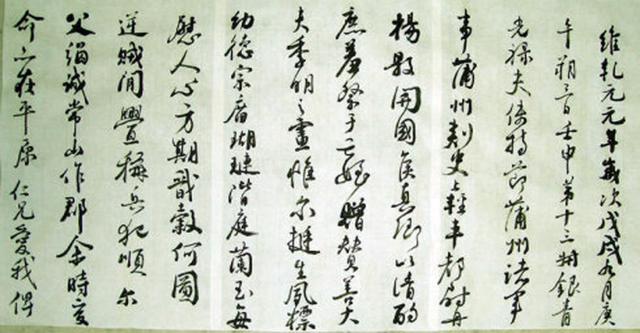 維乾元元年歲次戊戌九月庚
午朔三日壬申第十三叔銀青
光祿夫使持節蒲州諸軍
事蒲州刺史上輕車都尉丹
楊縣開國侯真卿以清酌
庶羞祭于亡姪贈贊善大
夫季明之靈惟爾挺生夙標
幼德宗廟瑚璉階庭蘭玉每
慰人心方期戩穀何圖
逆賊間釁稱兵犯順爾
父竭誠常山作郡余時受
命亦在平原仁兄愛我俾